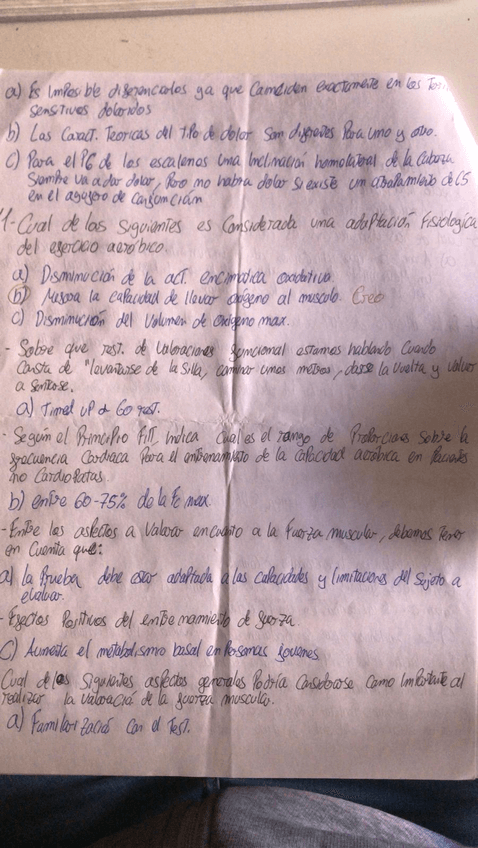 a) Es imposible diferenciarlos ya que Coinciden exactamente en los
sensitivos doloridos
b) Las Caract. Teoricas del tipo de dolor son diferentes Para uno y otro.
c) Para el PG de los escalenos una inclinación homolateral de la Cabeza
Siempre va a dar dolor, Pero no habra dolor si existe un atrapamiento de C5
en el agujero de Conjunción
1- Cual de las siguientes es Considerada una adaptación Fisiologica
del ejercicio aeróbico.
a) Disminución de la act. encimatica oxidativa.
b) Mejora la capacidad de llevar oxigeno al musculo. Creo
c) Disminución del Volumen de oxigeno max.
- Sobre que test. de Valoraciones funcional estamos hablando Cuando
Consta de "levantarse de la silla, caminar unos metros, darse la vuelta y volver
a sentarse.
a) Timed UP & GO test.
- Según el Principio Fitt indica Cual es el rango de Proporciones Sobre la
frecuencia Cardiaca Para el entrenamiento de la Capacidad aeróbica en Pacientes
no Cardiopatas.
b) entre 60-75% de la Fc max.
- Entre los aspectos a Valorar en cuanto a la Fuerza muscular, debemos Tener
en Cuenta que:
a) la Prueba debe estar adaptada a las capacidades y limitaciones del Sujeto a
evaluar.
- Efectos Positivos del entrenamiento de fuerza.
C) Aumenta el metabolismo basal en Personas jovenes
Cual de los Siguientes aspectos generales Podria Considerarse Como importante al
realizar la Valoració de la fuerza muscular.
a) Familiarizació Con el Test.